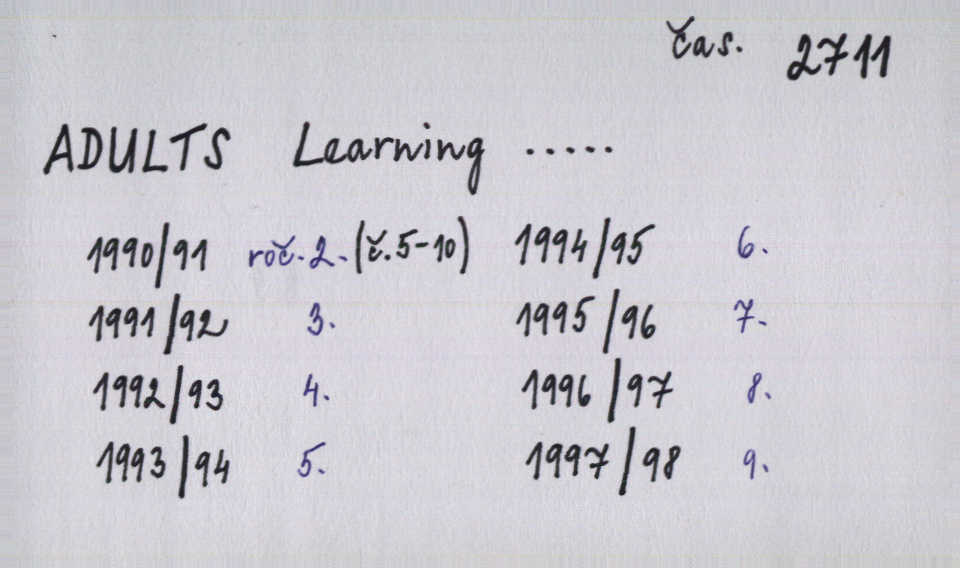 čas. 2711
ADULTS Learning .....
1990/91 roč. 2. (č. 5-10) 1994/95 6.
1991/92 3. 1995/96 7.
1992/93 4. 1996/97 8.
1993/94 5. 1997/98 9.